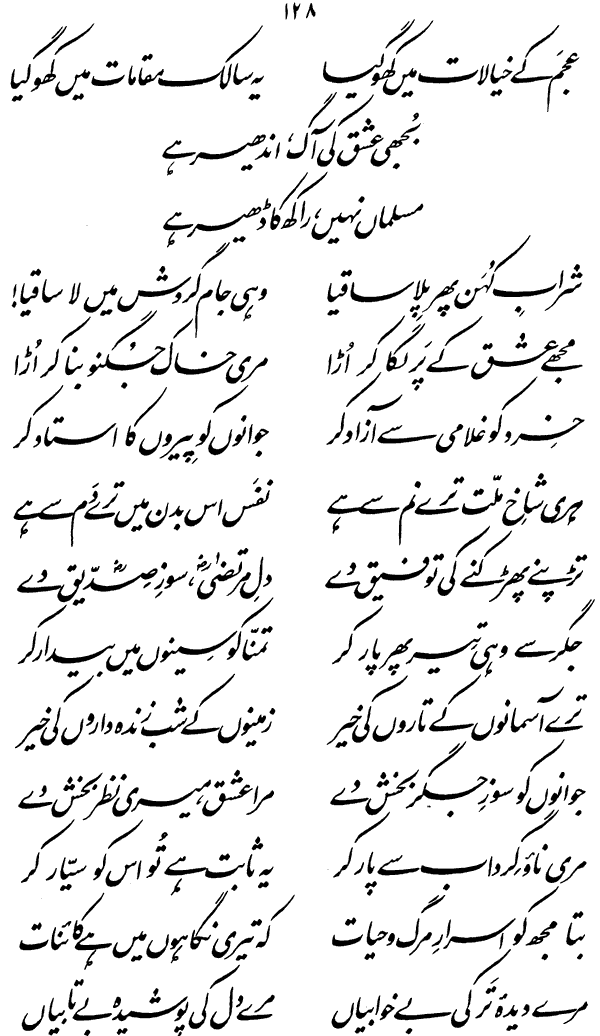 ۱۲۸
عجَم کے خیالات میں کھو گیا یہ سالک مقامات میں کھو گیا
بُجھی عشق کی آگ، اندھیر ہے
مسلماں نہیں، راکھ کا ڈھیر ہے
شرابِ کُہَن پھر پِلا ساقیا وہی جام گردش میں لا ساقیا!
مجھے عشق کے پَر لگا کر اُڑا مری خاک جُگنو بنا کر اُڑا
خِرد کو غلامی سے آزاد کر جوانوں کو پیروں کا استاد کر
ہری شاخِ ملّت ترے نم سے ہے نفَس اس بدن میں ترے دَم سے ہے
تڑپنے پھڑکنے کی توفیق دے دلِ مرتضیٰؓ، سوزِ صدّیقؓ دے
جگر سے وہی تِیر پھر پار کر تمنّا کو سِینوں میں بیدار کر
ترے آسمانوں کے تاروں کی خیر زمینوں کے شب زندہ داروں کی خیر
جوانوں کو سوزِ جگر بخش دے مرا عشق، میری نظر بخش دے
مری ناؤ گرداب سے پار کر یہ ثابت ہے تُو اس کو سیّار کر
بتا مجھ کو اسرارِ مرگ و حیات کہ تیری نگاہوں میں ہے کائنات
مرے دیدۂ تَر کی بے خوابیاں مرے دل کی پوشیدہ بے تابیاں